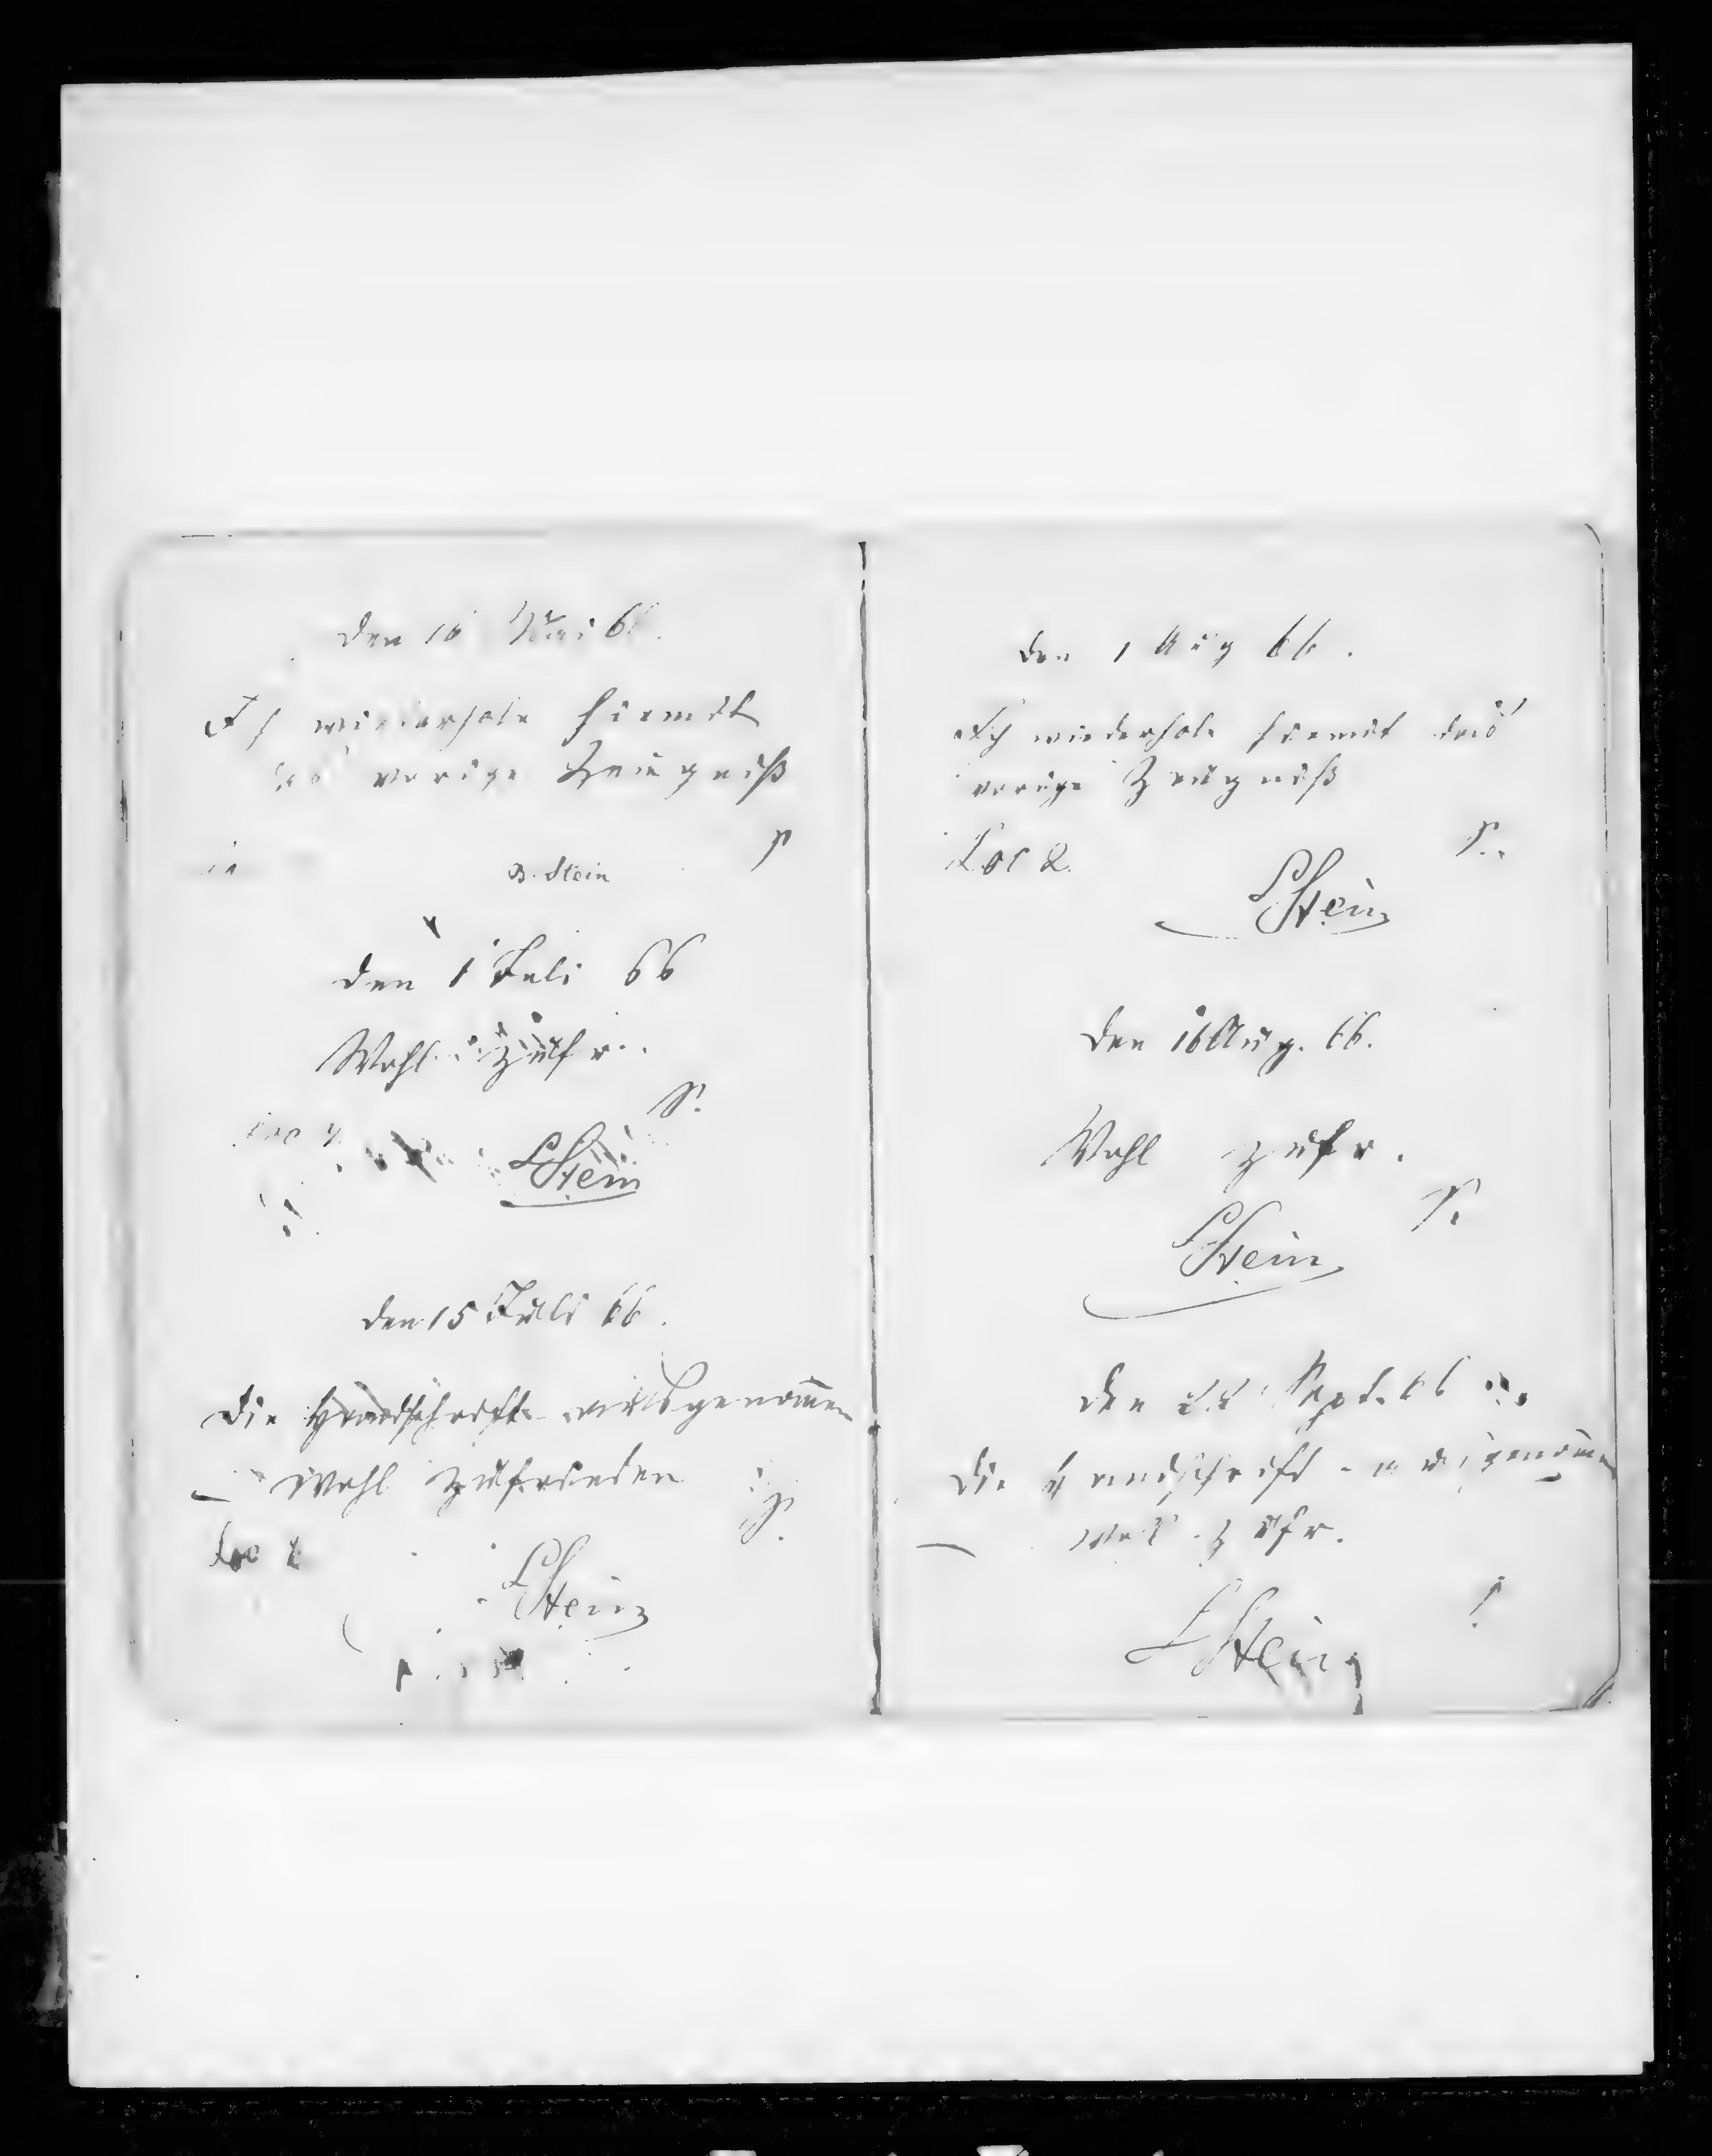 den 16 Mai 66.
Ich wiederhole hiemit
das vorige Zeugniß
B. Stein
den 1 Juli 66
Wohl zufr.
S.
LStein
den 15 Juli 66.
Die Handschrift ausgenommen
Wohl zufrieden
S.
Loc 2
LStein
den 1 Aug 66.
Ich wiederhole hiemit das
vorige Zeugniß
S.
Loc 2.
LStein
den 16 Aug. 66.
Wohl zufr.
S.
LStein
den Sept. 66
Die Handschrift - ausgenomen
wol zufr.
LStein